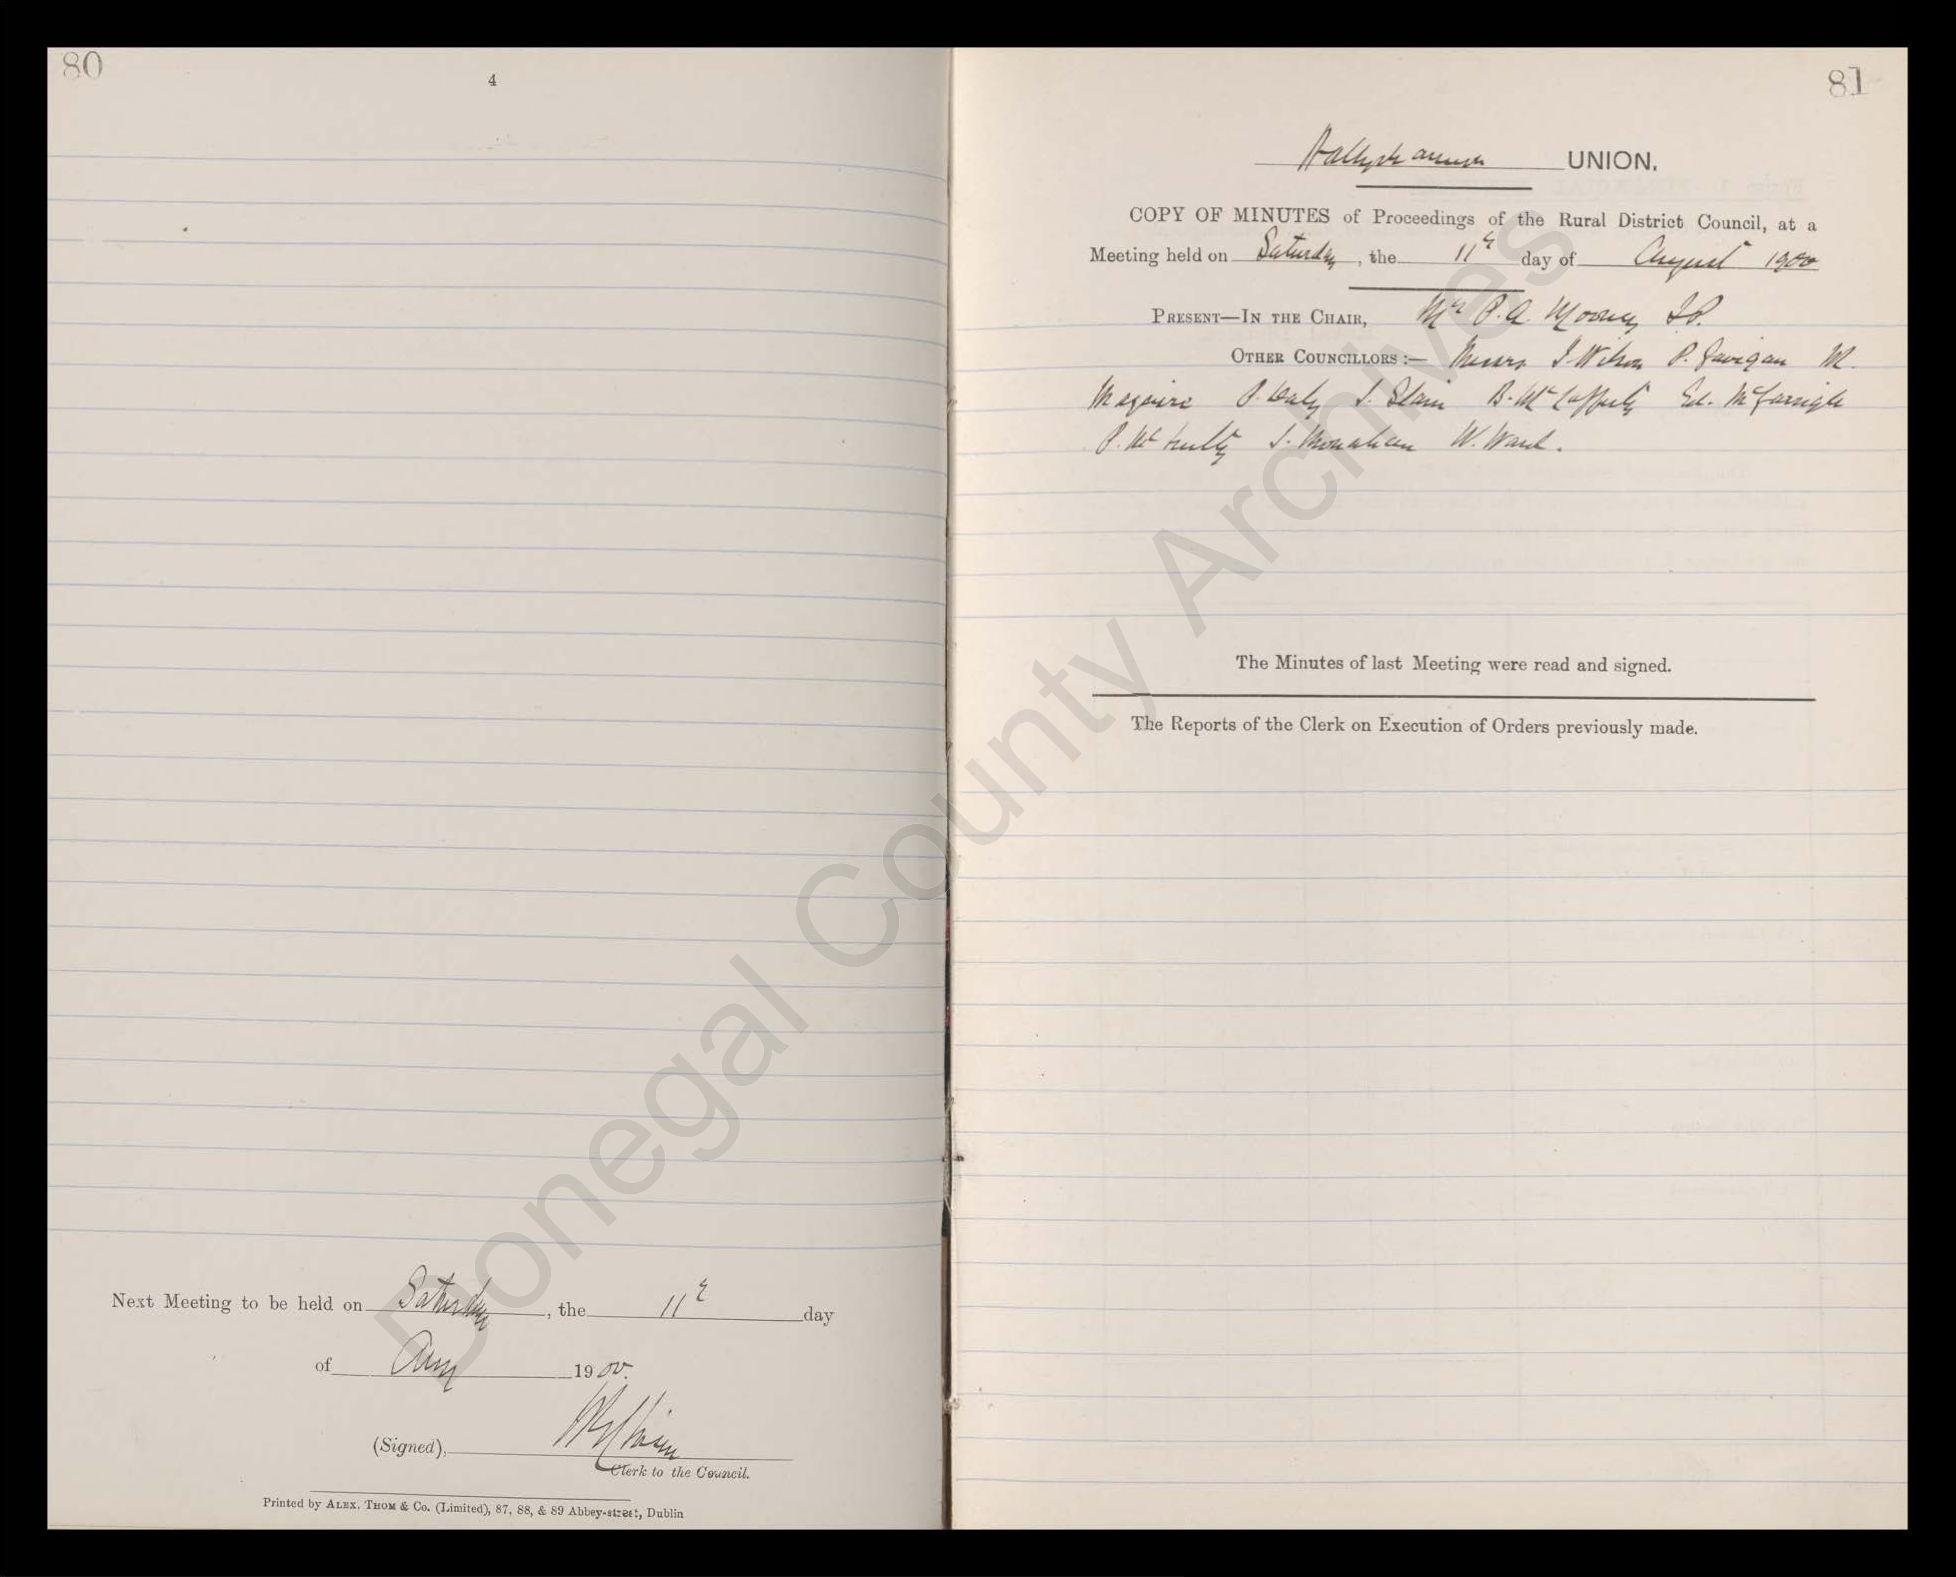 80
4
Next Meeting to be held on Saturday, the 11th day
of Aug 1900.
(Signed),
Clerk to the Council.
Printed by ALEX. THOM & Co. (Limited), 87, 88, & 89 Abbey-street, Dublin
81
Ballyshannon UNION.
COPY OF MINUTES of Proceedings of the Rural District Council, at a
Meeting held on Saturday, the 11th day of August 1900
PRESENT—IN THE CHAIR, Mr P. A. Mooney J.P.
OTHER COUNCILLORS :— Messrs J. Wilson P. Gavigan M.
Maguire P. Daly J. Slain B. McCafferty Ed. McGarrigle
P. McNulty J. Monahan W. Ward.
The Minutes of last Meeting were read and signed.
The Reports of the Clerk on Execution of Orders previously made.
Donegal County Archives